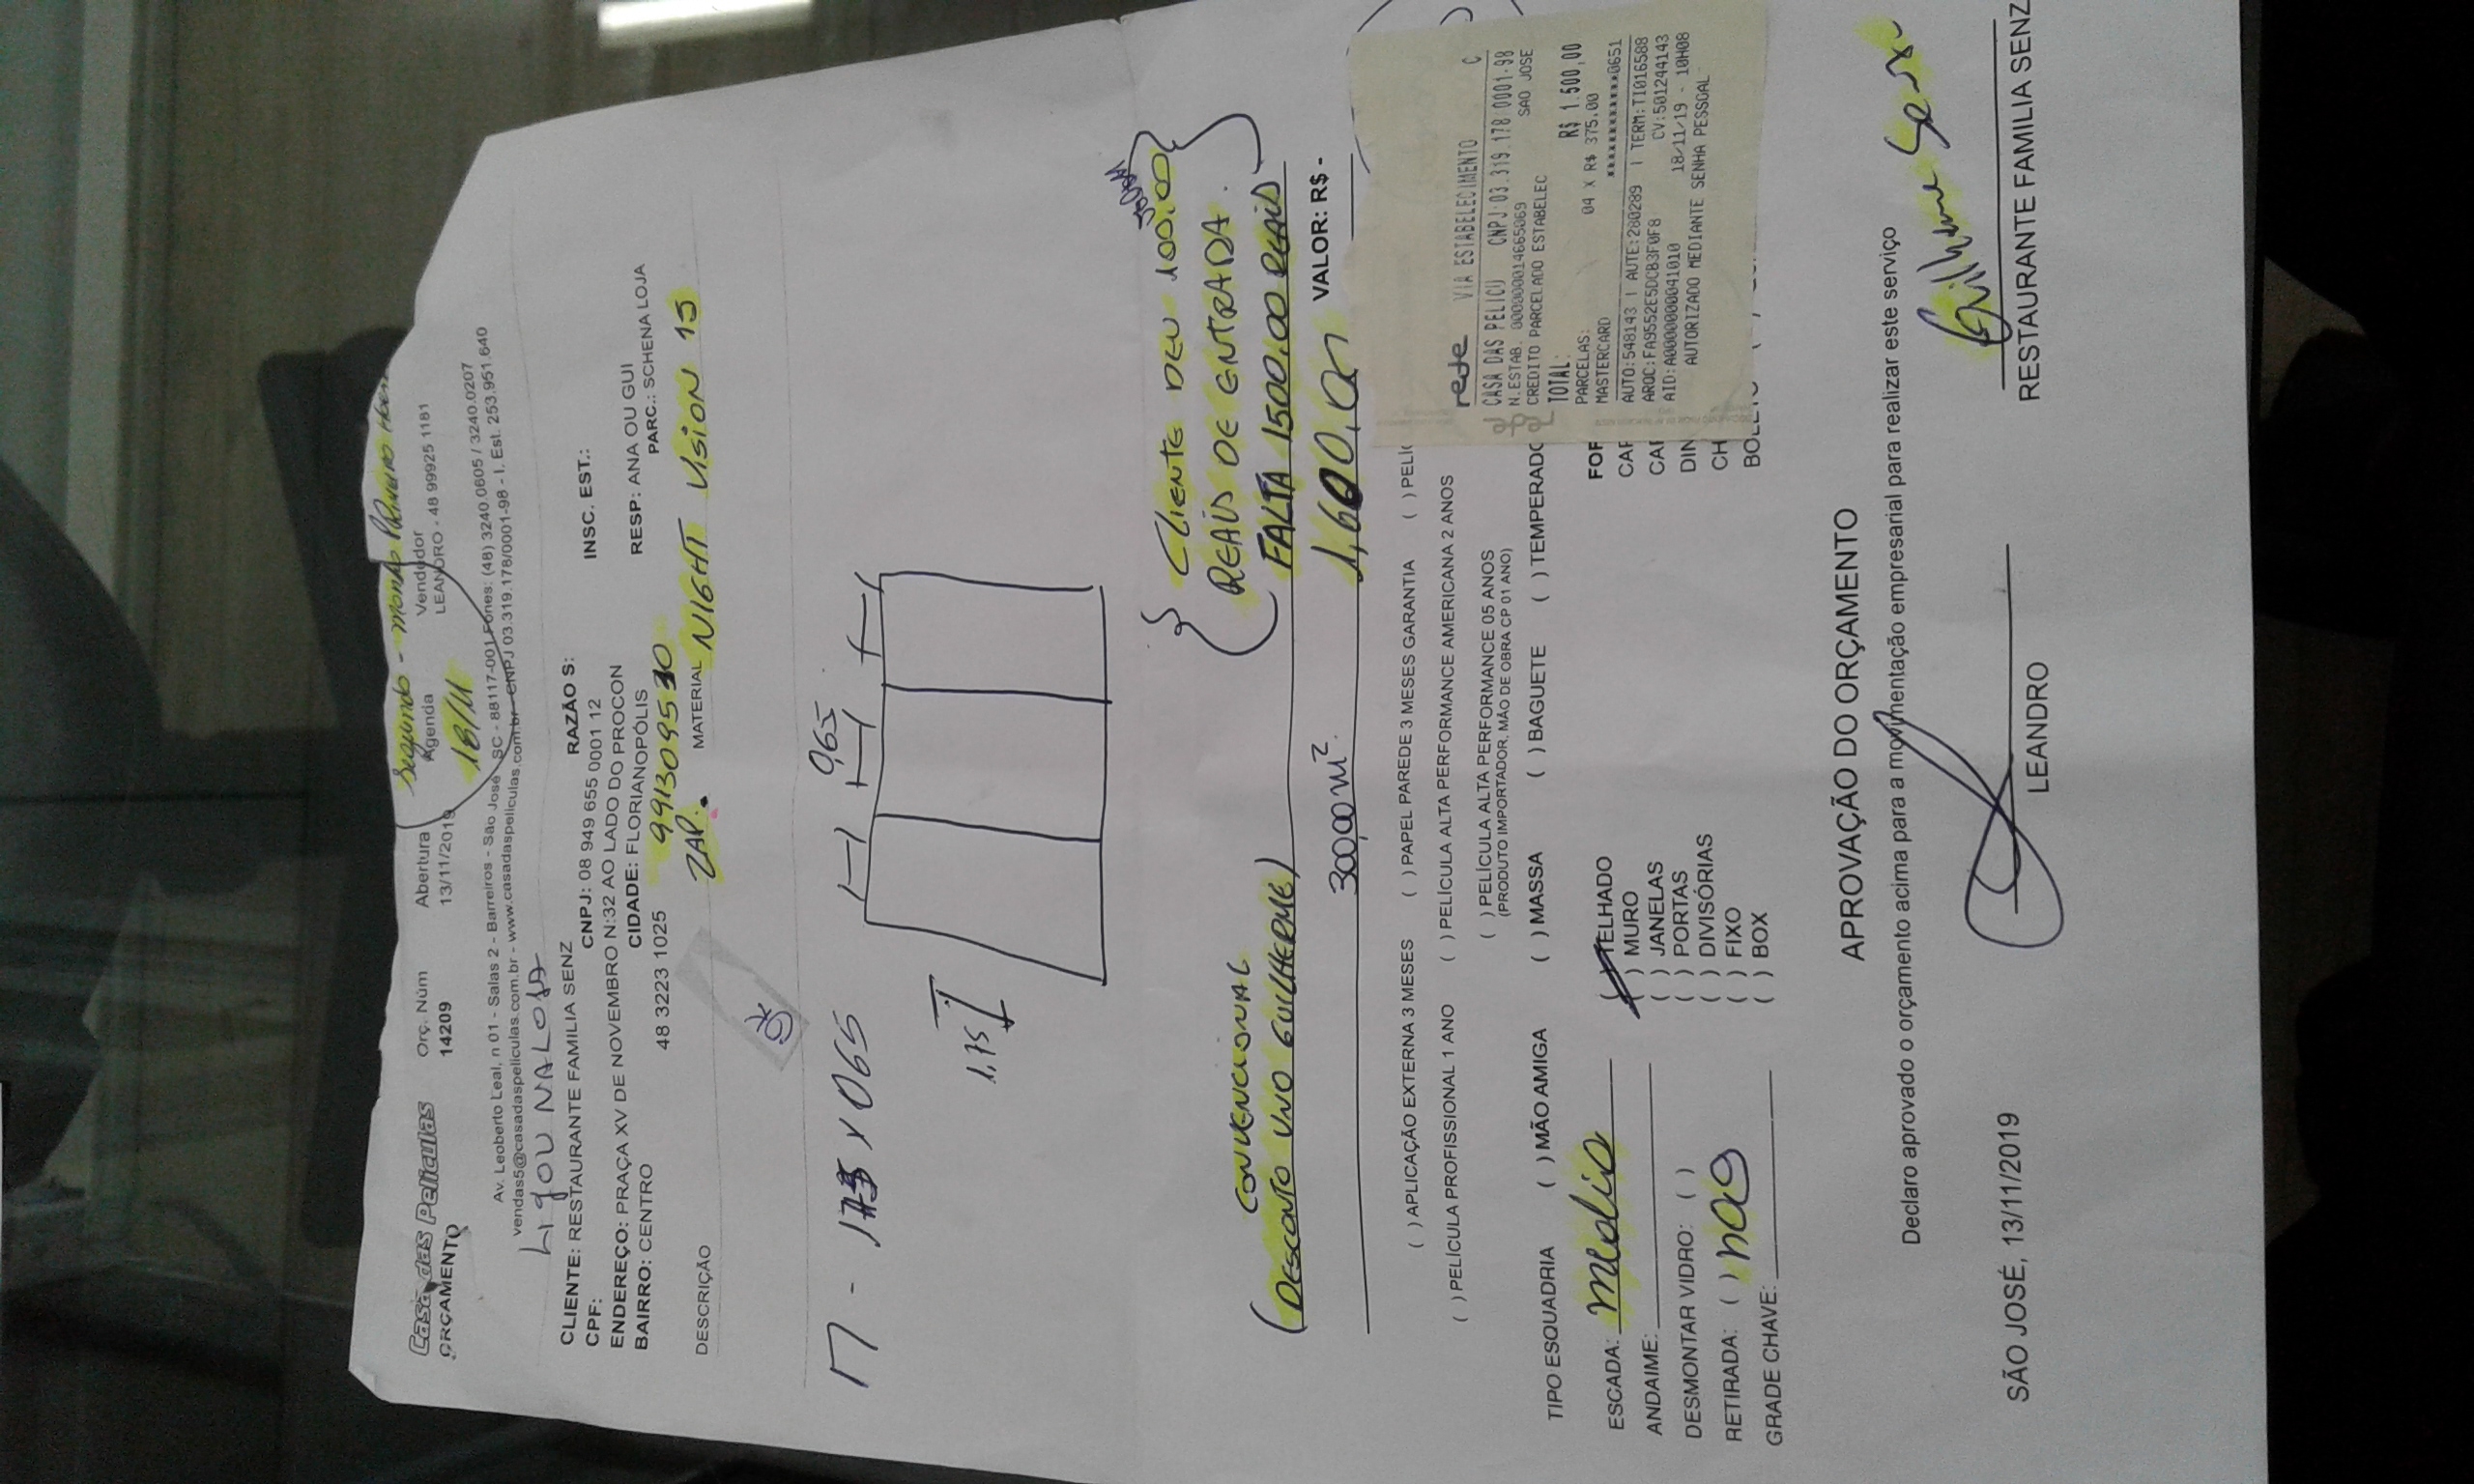 Segundo -
Casa das Peliculas
ORÇAMENTO
Orç. Núm
14209
Abertura
13/11/2019
Agenda
18/11
Vendedor
LEANDRO - 48 99925 1181
Av. Leoberto Leal, n 01 - Salas 2 - Barreiros - São José - SC - 88117-001 Fones: (48) 3240.0605 / 3240.0207
vendas5@casadaspeliculas.com.br - www.casadaspeliculas.com.br - CNPJ 03.319.178/0001-98 - I. Est. 253.951.640
LigOU NA LOJA
CLIENTE: RESTAURANTE FAMILIA SENZ RAZÃO S:
CPF: CNPJ: 08 949 655 0001 12 INSC. EST.:
ENDEREÇO: PRAÇA XV DE NOVEMBRO N:32 AO LADO DO PROCON
BAIRRO: CENTRO CIDADE: FLORIANOPÓLIS RESP: ANA OU GUI
48 3223 1025 991309530 PARC.: SCHENA LOJA
ZAP.
DESCRIÇÃO MATERIAL NIGHT VISION 15
OK
065
0,65
1,75
CLIENTE DEU 100,00
REAIS DE ENTRADA.
FALTA 1500,00 REAIS
CONVENCIONAL
(DESCONTO UNO GUILHERME)
300,00 m² 1,600,00 VALOR: R$ -
( ) APLICAÇÃO EXTERNA 3 MESES ( ) PAPEL PAREDE 3 MESES GARANTIA ( ) PELÍC
( ) PELÍCULA PROFISSIONAL 1 ANO ( ) PELÍCULA ALTA PERFORMANCE AMERICANA 2 ANOS
( ) PELÍCULA ALTA PERFORMANCE 05 ANOS
(PRODUTO IMPORTADOR, MÃO DE OBRA CP 01 ANO)
TIPO ESQUADRIA ( ) MÃO AMIGA ( ) MASSA ( ) BAGUETE ( ) TEMPERADO
ESCADA: médio
ANDAIME:
DESMONTAR VIDRO: ( )
RETIRADA: ( ) não
GRADE CHAVE:
( ) TELHADO
( ) MURO
( ) JANELAS
( ) PORTAS
( ) DIVISÓRIAS
( ) FIXO
( ) BOX
FOR
CAR
CAR
DIN
CH
BOLETO
rede VIA ESTABELECIMENTO C
CASA DAS PELICU CNPJ:03.319.178/0001-98
N.ESTAB. 000000014665069 SAO JOSE
CREDITO PARCELADO ESTABELEC
TOTAL: R$ 1.500,00
PARCELAS: 04 X R$ 375,00
MASTERCARD ************0651
AUTO:548143 | AUTE:280289 | TERM:TI016588
ARQC:FA9552E5DCB3F0F8 CV:501244143
AID:A0000000041010 18/11/19 - 10H08
AUTORIZADO MEDIANTE SENHA PESSOAL
APROVAÇÃO DO ORÇAMENTO
Declaro aprovado o orçamento acima para a movimentação empresarial para realizar este serviço
Guilherme Senz
SÃO JOSÉ, 13/11/2019
LEANDRO
RESTAURANTE FAMILIA SENZ